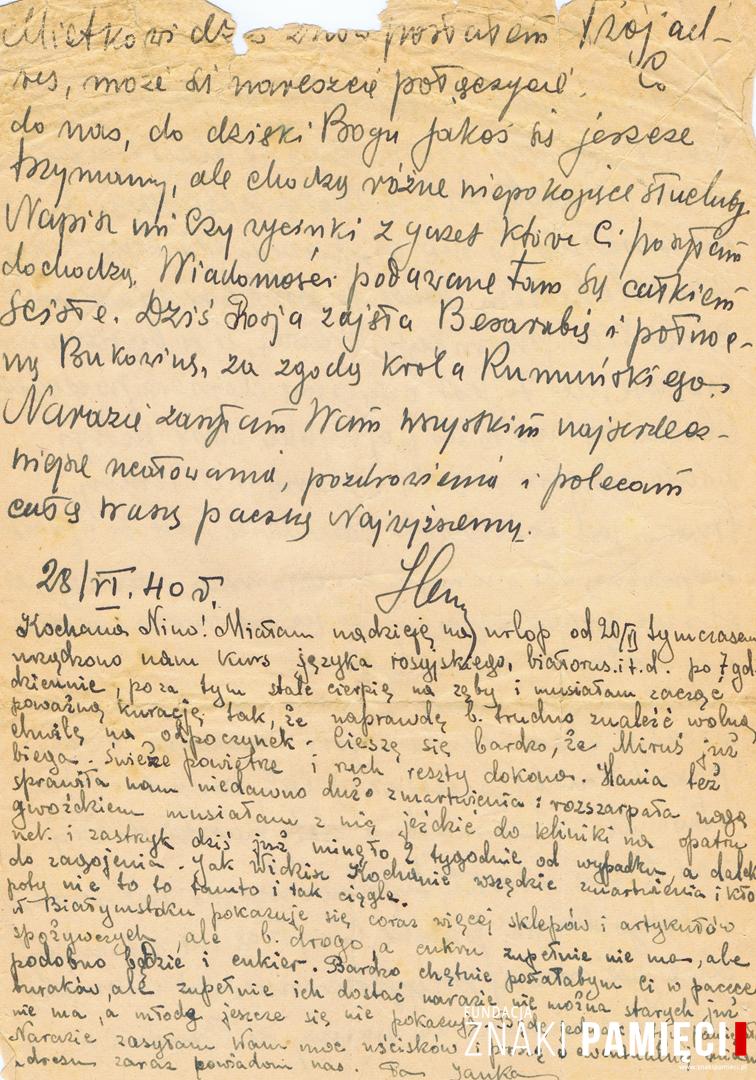 Mietkowi dziś znów posłałam Twój ad-
res, może się nareszcie połączycie. Co
do nas, to dzięki Bogu jakoś się jeszcze
trzymamy, ale chodzą różne niepokojące słuchy.
Napisz mi czy wycinki z gazet które Ci posyłam
dochodzą. Wiadomości podawane tam są całkiem
ścisłe. Dziś Rosja zajęła Besarabię i północ-
ną Bukowinę, za zgodą króla Rumuńskiego.
Narazie zasyłam Wam wszystkim najserdecz-
niejsze ucałowania, pozdrowienia i polecam
całą waszą paczkę Najwyższemu.
28/VI. 40 r.
Kochana Nino! Miałam nadzieję na urlop od 20/VI tymczasem
urządzono nam kurs języka rosyjskiego, białorus. i t. d. po 7 god.
dziennie, poza tym stale cierpię na zęby i musiałam zacząć
poważną kurację tak, że naprawdę b. trudno znaleźć wolną
chwilę na odpoczynek. Cieszę się bardzo, że Miruś już
biega. Świeże powietrze i ruch reszty dokona. Hania też
sprawiła nam niedawno dużo zmartwienia: rozszarpała nogę
gwoździem musiałam z nią jeździć do kliniki na opatru
nek. i zastrzyk dziś już minęło 2 tygodnie od wypadku, a daleko
do zagojenia. Jak widzisz Kochanie wszędzie zmartwienia i kło
poty nie to to tamto i tak ciągle.
W Białymstoku pokazuje się coraz więcej sklepów i artykułów
spożywczych, ale b. drogo a cukru zupełnie nie ma, ale
podobno będzie i cukier. Bardzo chętnie posłałabym Ci w paczce
buraków, ale zupełnie ich dostać narazie nie można starych już
nie ma, a młode jeszcze się nie pokazują
Narazie zasyłam Wam moc uścisków i proszę o ewentualnej zmianie
adresu zaraz powiadom nas. Pa Janka
FUNDACJA
ZNAKI PAMIĘCI
www.znakipamieci.pl